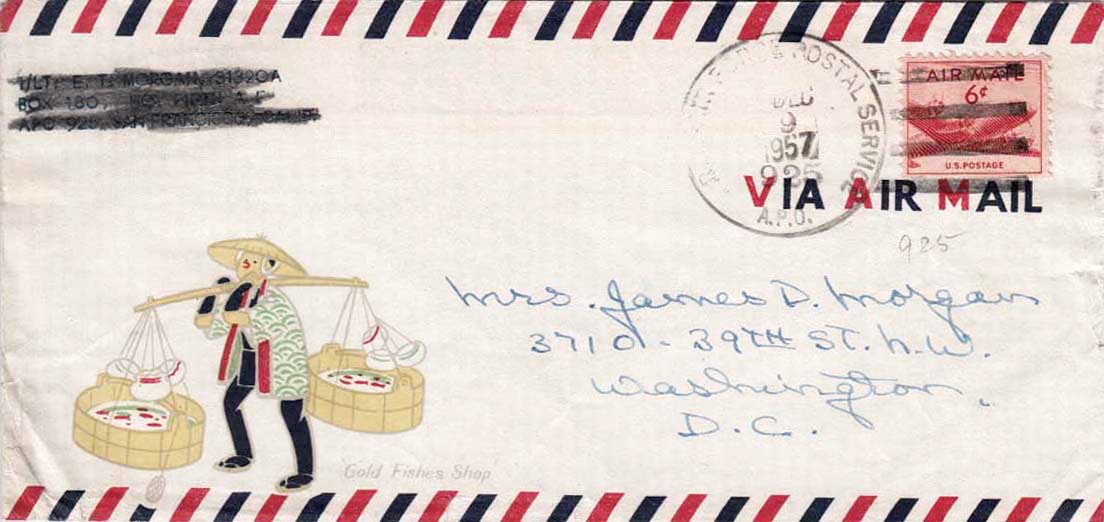 1/LT. E. T. MORGAN, 31320A
BOX 180,
APO 925, SAN FRANCISCO, CALIF.
POSTAL SERVICE
DEC
9
1957
925
A.P.O.
AIR MAIL
6¢
U.S. POSTAGE
VIA AIR MAIL
925
Mrs. James D. Morgan
3710 - 39TH ST. N.W.
Washington,
D.C.
Gold Fishes Shop